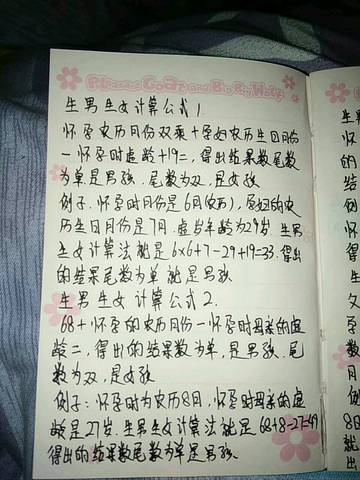 Pleasant Goat and Big Big Wolf
生男生女计算公式1.
怀孕农历月份双乘+孕妇农历生日月份
-怀孕时虚龄+19=,得出结果数尾数
为单是男孩,尾数为双,是女孩
例子.怀孕时月份是6月(农历),孕妇的农
历生日月份是7月.虚岁年龄为29岁.生男
生女计算法就是6×6+7-29+19=33.得出
的结果尾数为单 就是男孩
生男生女计算公式2.
68+怀孕的农历月份-怀孕时母亲的虚
龄=,得出的结果数为单,是男孩.尾
数为双,是女孩
例子:怀孕时为农历8月,怀孕时母亲的虚
龄是27岁.生男生女计算法就是68+8-27=49
得出的结果数尾数为单是男孩